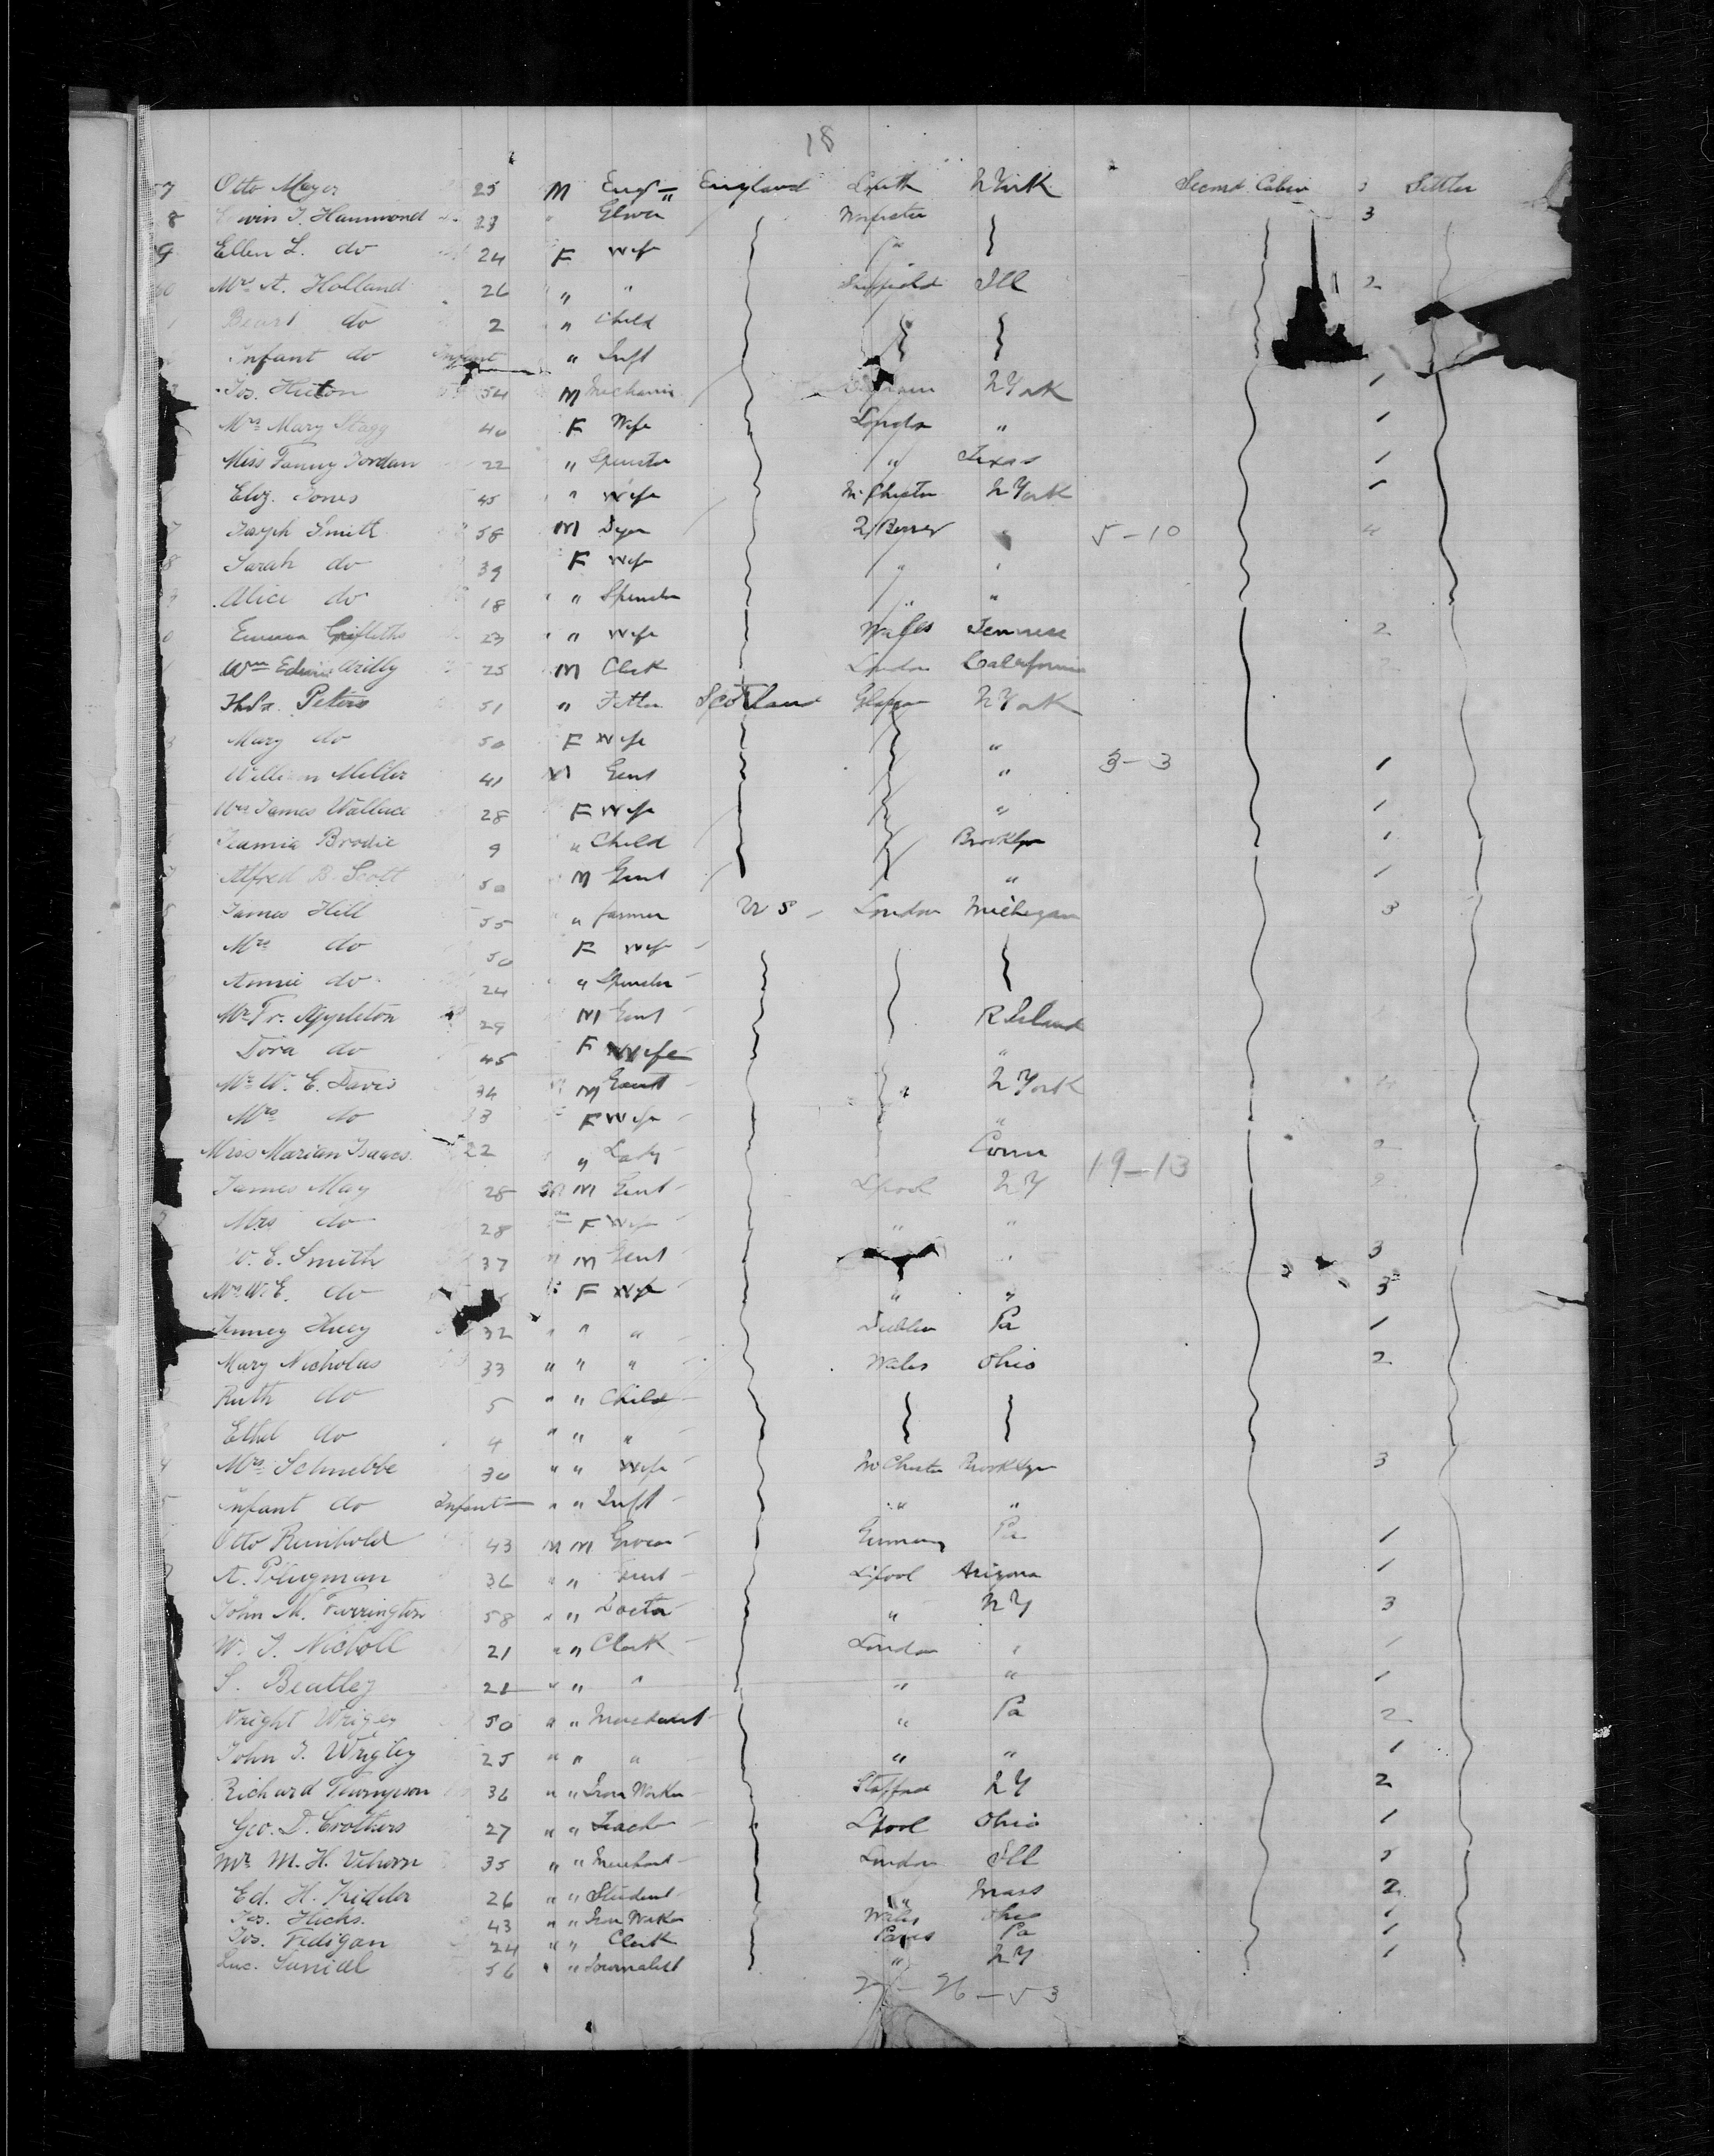 18
7 Otto Mayer 25 M Engr " England South N York Second Cabin 3 Settler
8 Edwin J. Hammond 23 " Glover Worcester 3
9 Ellen L. do 24 F Wife "
Mrs A. Holland 26 " " Sheffield Ill 2
do 2 " Child
Infant do Infant " Inft
Jos. Hieton 54 M Mechanic N York 1
Mrs Mary Stagg 40 F Wife London " 1
Miss Fanny Jordan 22 " Spinster " Texas 1
Eliz. Jones 45 " " Wife M. Chester N York 1
7 Joseph Smith 58 M Dyer " 5-10 4
8 Sarah do 39 F Wife " "
Alice do 18 " " Spinster " "
Emma Griffiths 23 " " Wife Wales Tennese 2
Wm Edwin 25 M Clerk London California 2
Peters 51 " Fitter Scotland Glasgow N York
Mary do 50 F Wife "
William Miller 41 M Gent " 3-3 1
Mrs James Wallace 28 F Wife " 1
Brodie 9 " Child Brooklyn 1
Alfred B. Scott 50 M Gent " 1
James Hill 55 " farmer U S - London Michegan 3
Mrs do 50 F Wife -
Annie do 24 " Spinster -
Mr Fr. Appleton 29 M Gent - R Island
Dora do 45 F Wife "
Mr W. E. Davis 34 M Gent - " N York 4
Mrs do 33 F Wife - "
Miss Marian Isaacs 22 " Lady - Conn 19-13 2
James May 28 M Gent - Lpool N Y 2
Mrs do 28 F Wife - " "
W. E. Smith 37 " M Gent - " 3
Mrs W. E. do F Wife - " " 3
Huey 32 " " " - Dublin Pa 1
Mary Nicholas 33 " " " - Wales Ohio 2
Ruth do 5 " " Child -
Ethel do 4 " " " -
Mrs Schnebbe 30 " " Wife - M Chester Brooklyn 3
Infant do Infant - " " Inft - " "
Otto Reinhold 43 M M Grocer - Germany Pa 1
A. 36 " " Gent - Lpool Arizona 1
John M. Farrington 58 " " Doctor - " N Y 3
W. J. Nicholl 21 " " Clerk - London " 1
S. Beatley 21 " " " " " 1
Wright Wrigley 50 " " Merchant - " Pa 2
John J. Wrigley 25 " " " - " " 1
Richard Thompson 36 " " Iron Worker - Stafford N Y 2
Geo. D. Crothers 27 " " Teacher - Lpool Ohio 1
Mr M. H. 35 " " Merchant - London Ill 5
Ed. H. Kidder 26 " " Student - " Mass 2
Jas. Hicks. 43 " " Iron Worker Wales Ohio 1
Jos. Fedigan 24 " " Clerk Paris Pa 1
Luc. 56 " " Journalist " N Y 1
27 - 26 - 53